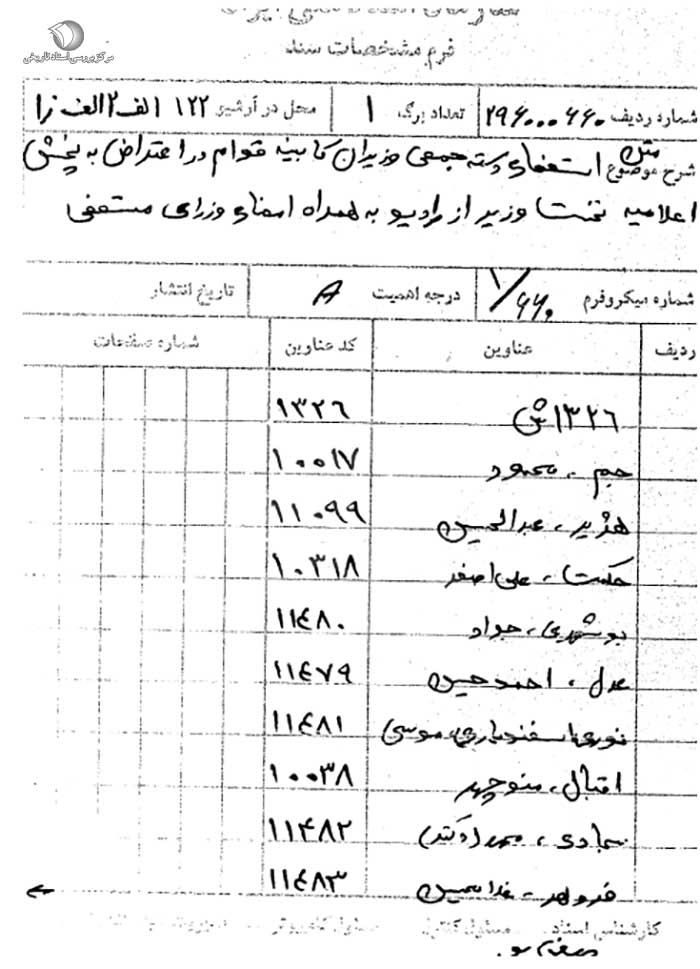 مرکز بررسی اسناد تاریخی
فرم مشخصات سند
شماره ردیف ۲۹۶۰۰۰۶۶۰ تعداد برگ ۱ محل در آرشیو ۱۲۲ الف ۲ الف ز ۱
شرح موضوع متن استعفای دسته جمعی وزیران کابینه قوام در اعتراض به پخش
اعلامیه نخست وزیر از رادیو به همراه امضای وزرای مستعفی
شماره میکروفرم ۱/۶۶۰ درجه اهمیت A تاریخ انتشار
ردیف عناوین کد عناوین شماره صفحات
۱۳۲۶ش ۱۳۲۶
جم ، محمود ۱۰۰۱۷
هژیر ، عبدالحسین ۱۱۰۹۹
حکمت ، علی اصغر ۱۰۳۱۸
بوشهری ، جواد ۱۱٤۸۰
عدل ، احمدحسین ۱۱٤۷۹
نوری اسفندیاری، موسی ۱۱٤۸۱
اقبال ، منوچهر ۱۰۰۳۸
سجادی ، محمد (دکتر) ۱۱٤۸۲
فروهر ، غلامحسین ۱۱٤۸۳
کارشناسی اسناد مسئول کنترل مسئول کامپیوتر